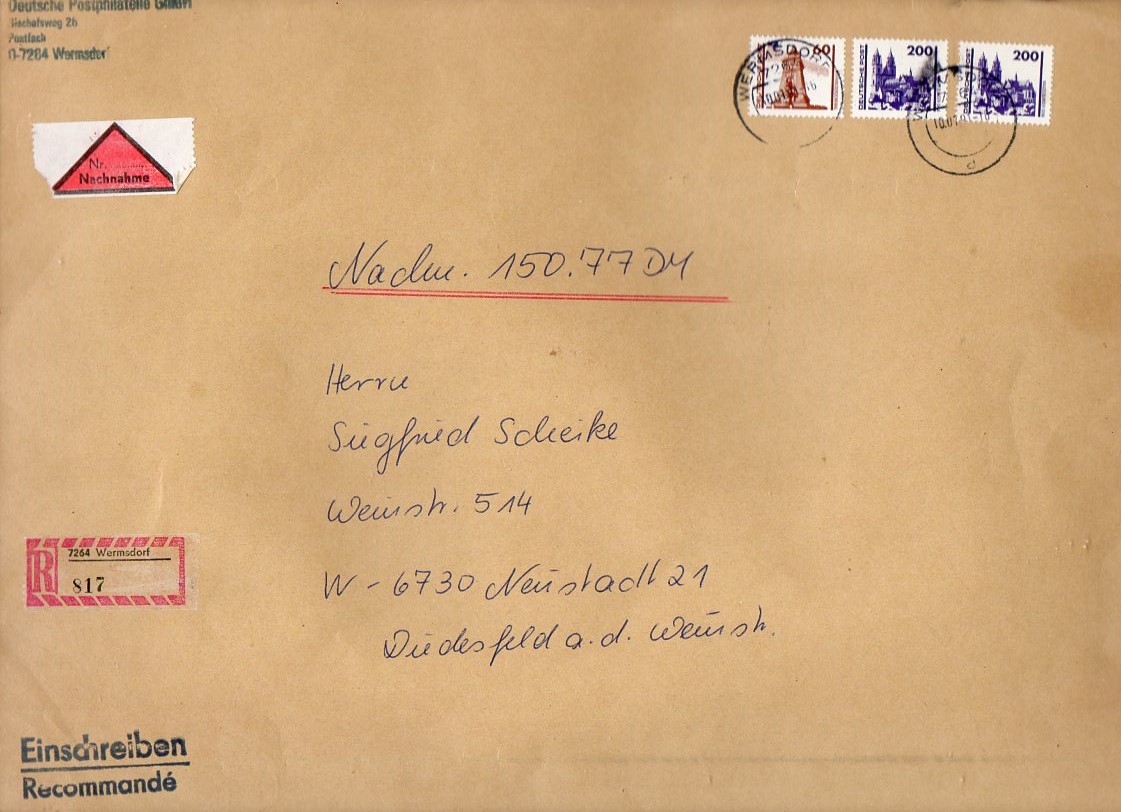 Deutsche Postphilatelie GmbH
Postfach
O-7264 Wermsdorf
60
DEUTSCHE POST 200
200
WERMSDORF
Nr.
Nachnahme
Nachn. 150.77 DM
Herrn
Siegfried Scheike
Weinstr. 514
W - 6730 Neustadt 21
Diedesfeld a. d. Weinstr.
R
7264 Wermsdorf
817
Einschreiben
Recommandé